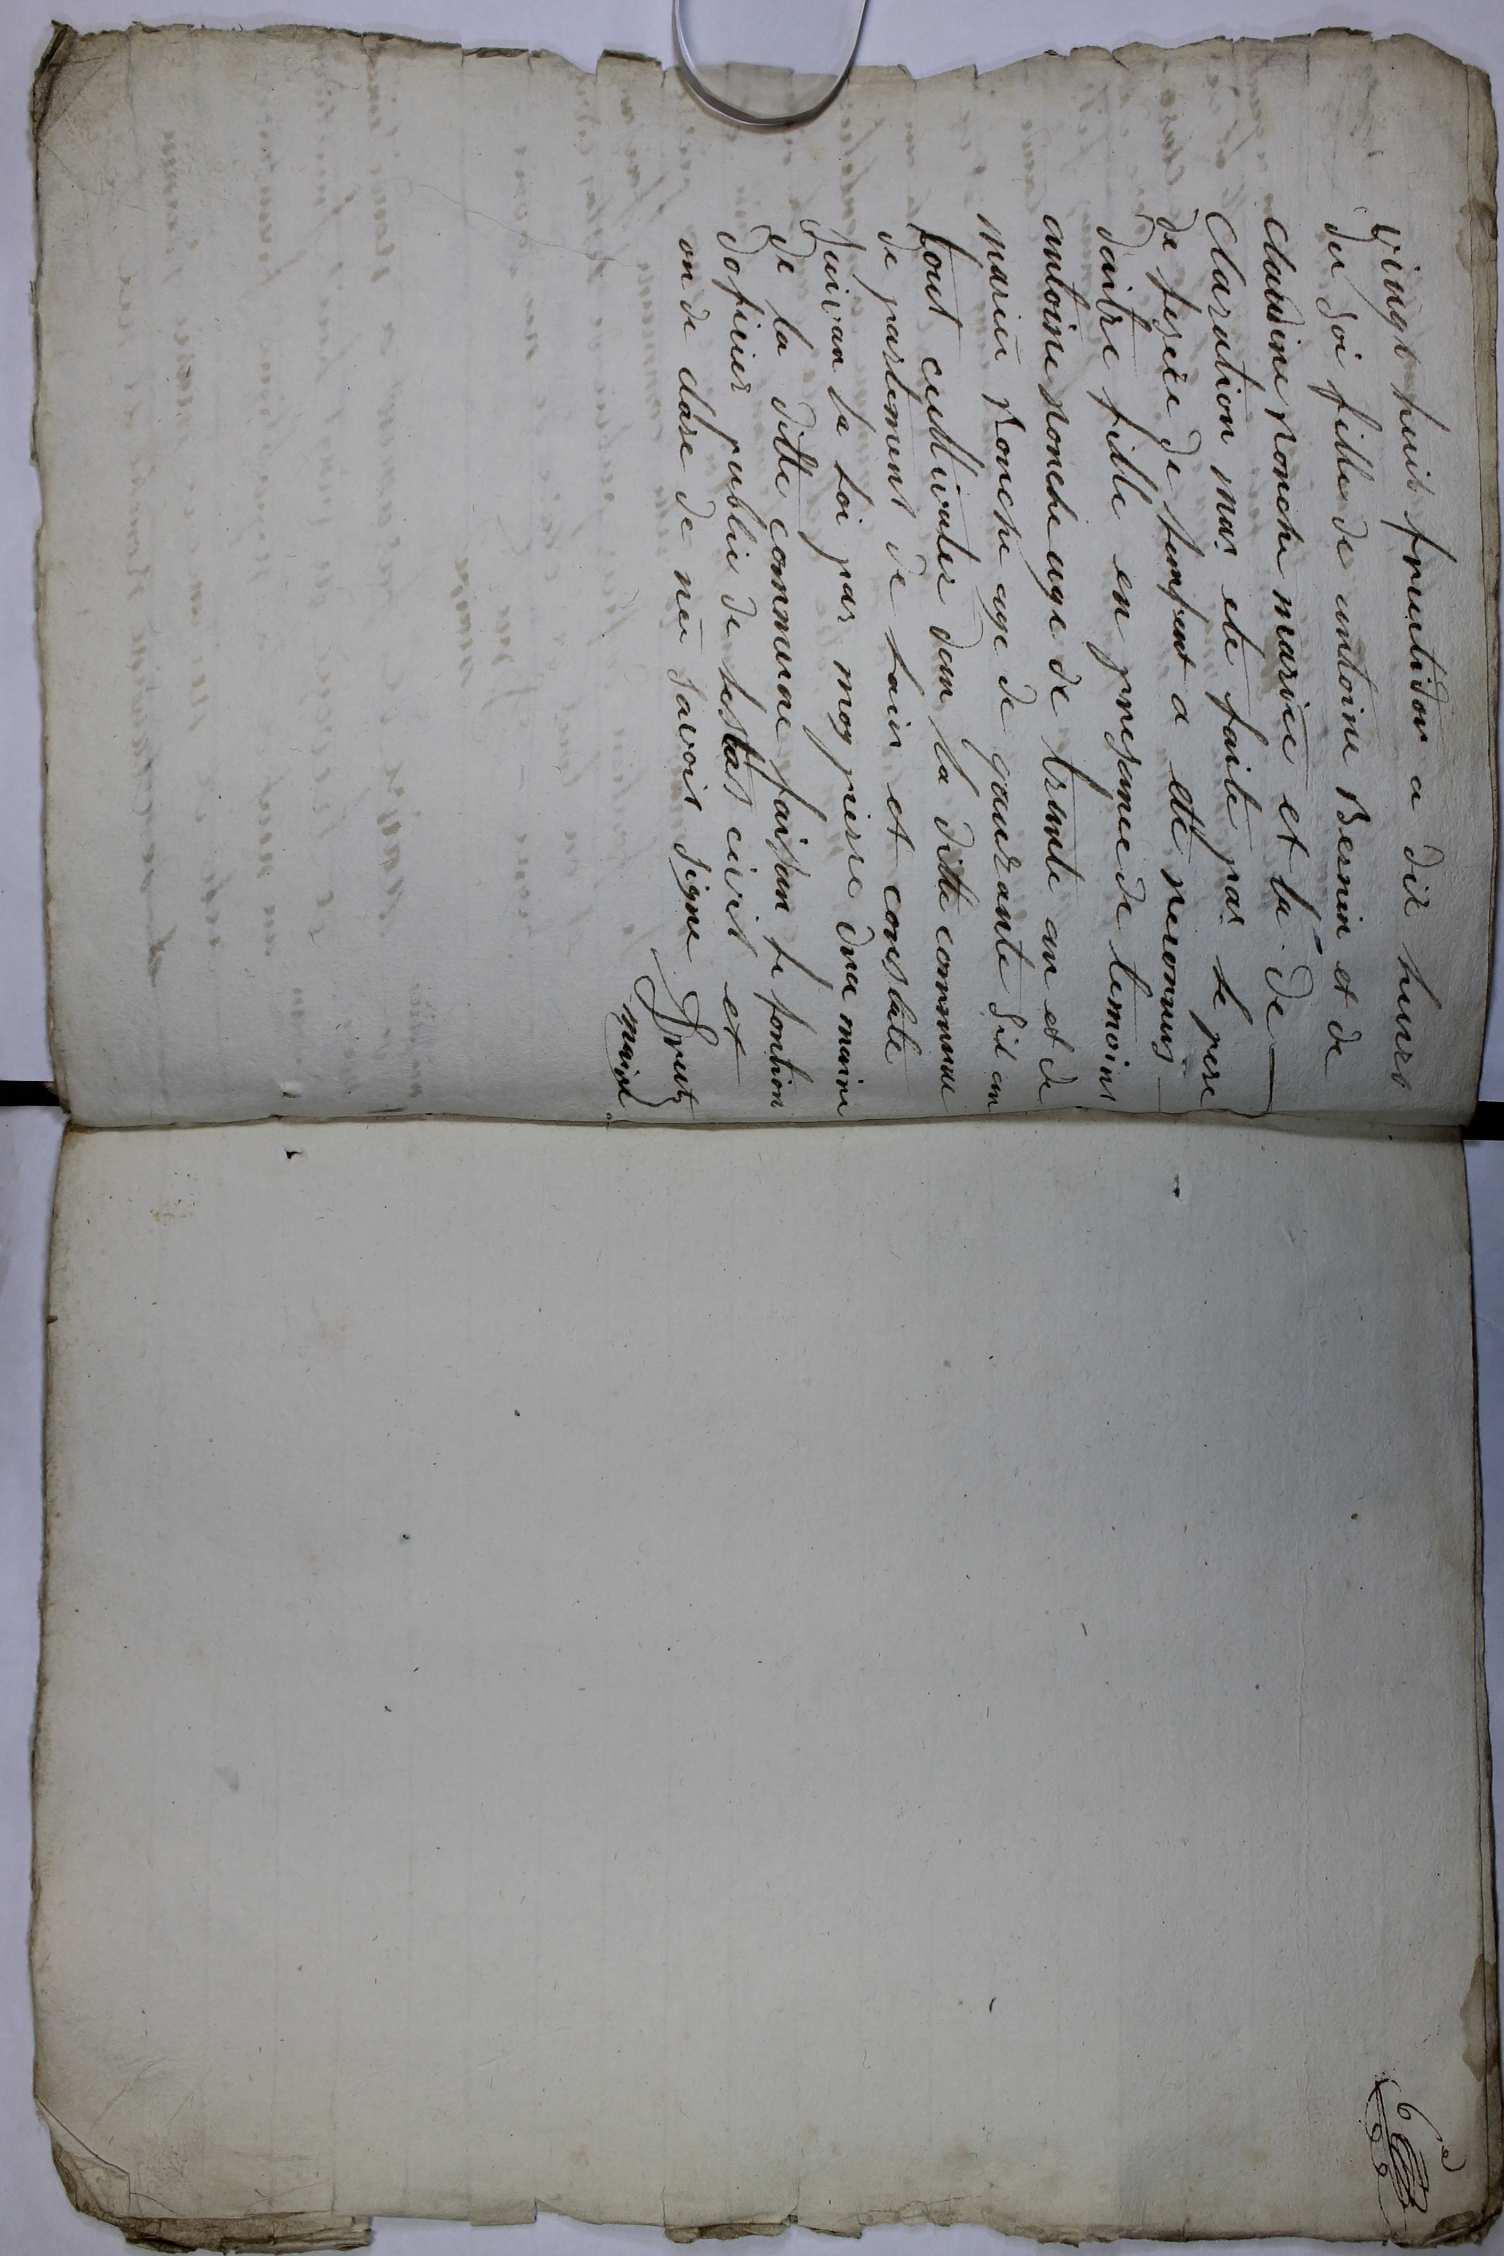 vingt huit fructidor a dix heurs
du soi fille de antoine Bernin et de
claudine ronche mariée et la de
claration mas ete faite par le pere
de sexe de lenfent a ette reconnus
daitre fille en presance de temoins
antoine ronche age de trante an et de
mariee Ronche age de gaurante sit an
tout cultivater dan la ditte commune
de partement de lain et constate
Suivan la loi par moy piere mairie
de la ditte commune faisan le fontion
doficier publie de lestat civil et
on de clare de nee savoir signe
maire
6